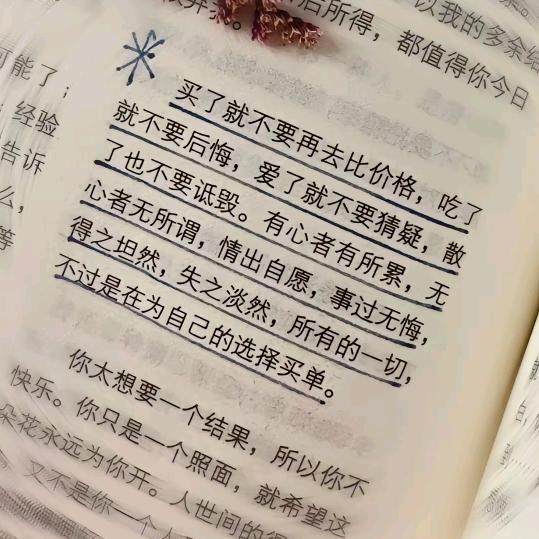 后所得，都值得你今日
以我的多余给
可能了；
经验
告诉
么，
等
买了就不要再去比价格，吃了
就不要后悔，爱了就不要猜疑，散
了也不要诋毁。有心者有所累，无
心者无所谓，情出自愿，事过无悔，
得之坦然，失之淡然，所有的一切，
不过是在为自己的选择买单。
你太想要一个结果，所以你不
快乐。你只是一个照面，就希望这
朵花永远为你开。人世间的
又不是你一个人